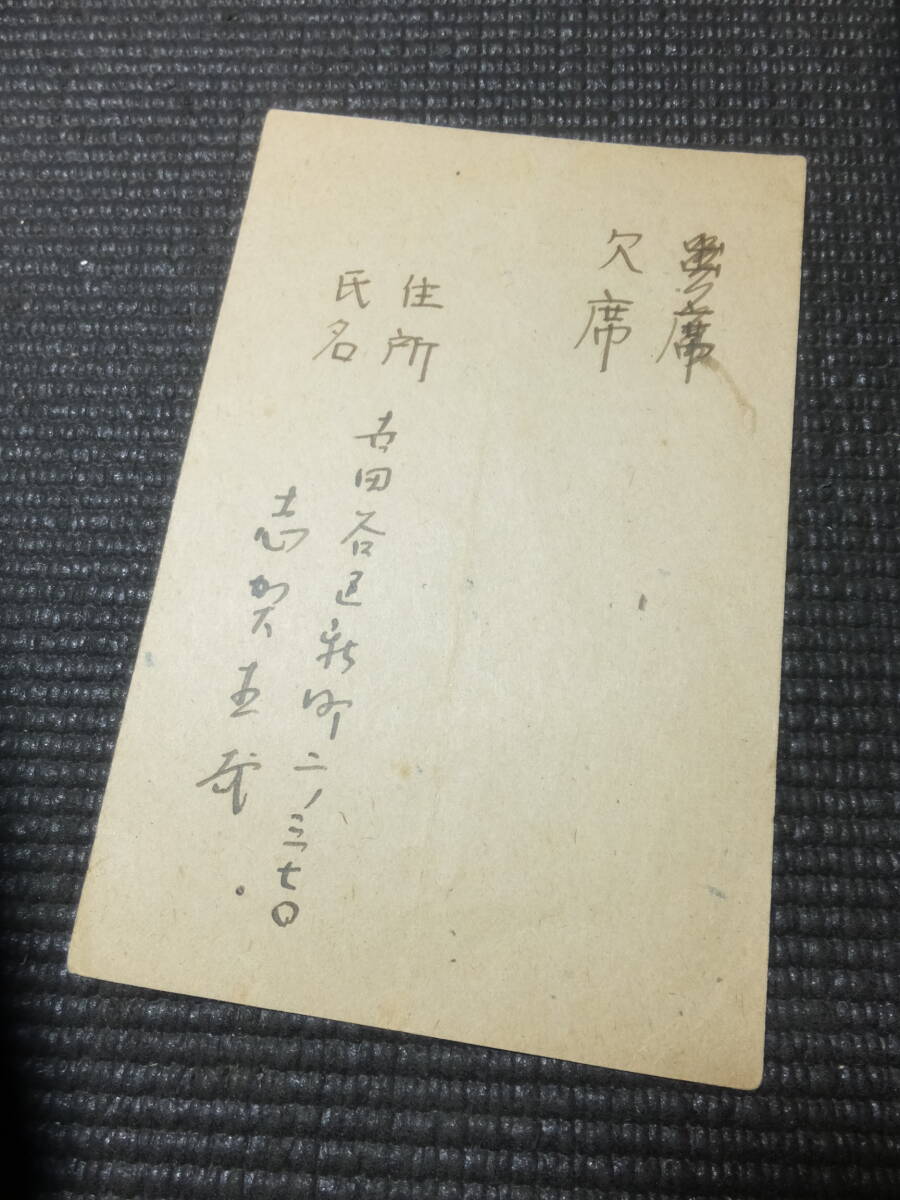 出席
欠席
住所 世田谷区新町二ノ三七〇
氏名 志賀直哉